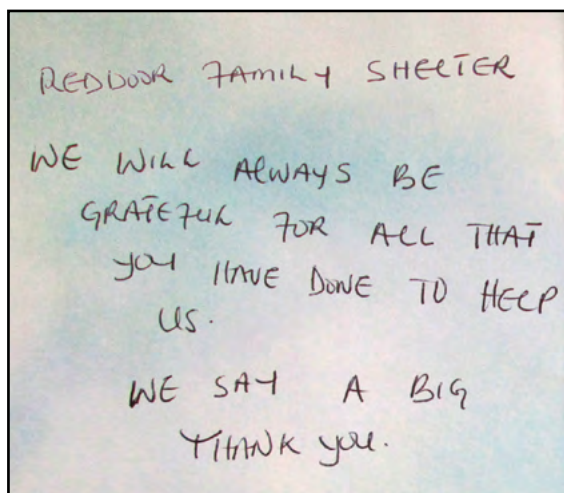 REDDOOR FAMILY SHELTER
WE WILL ALWAYS BE
GRATEFUL FOR ALL THAT
YOU HAVE DONE TO HELP
US.
WE SAY A BIG
THANK YOU.